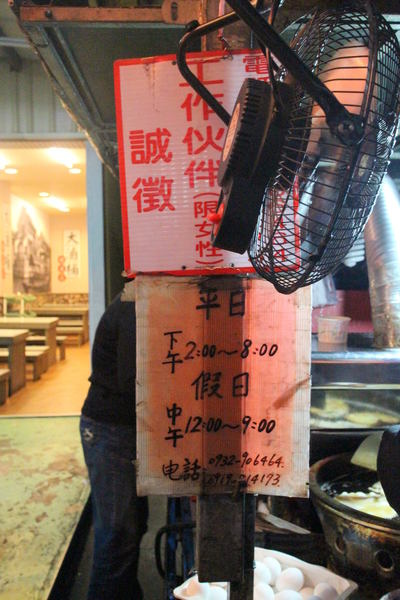 電
工作伙伴(限女性)
誠徵
平日
下午2:00～8:00
假日
中午12:00～9:00
电話:0932-906464.
0919-214193